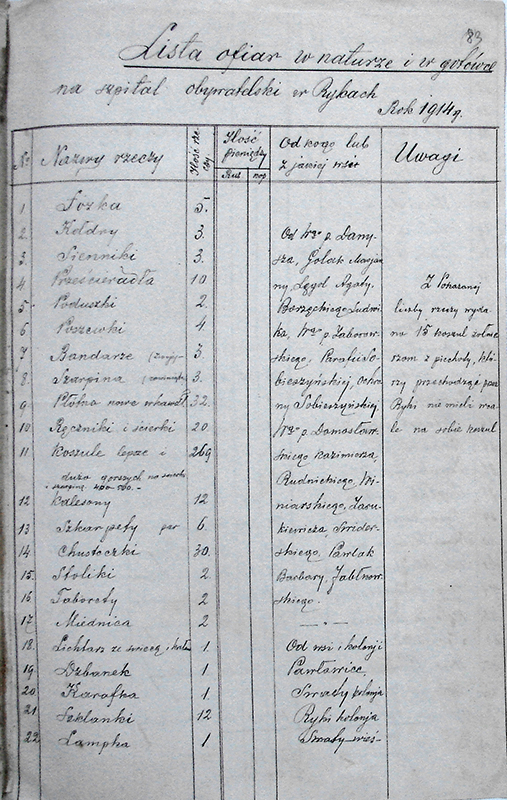 83
Lista ofiar w naturze i w gotówce
na szpital obywatelski w Rykach
Rok 1914 g.
No Nazwy rzeczy Ilość Ilość pieniędzy Rub. kop. Od kogo lub z jakiej wsi Uwagi
1 Łózka 5.
2. Kołdry 3. Od Wgo p. Dany-
3. Sienniki 3. sza, Golak Maryan-
4 Prześcieradła 10 ny, Agaty, Z Pokazanej
5. Poduszki 2. Borzęckiego Ludwi- liczby rzeczy wyda-
6 Poszewki 4 ka, Wgo p. Jaborow- no 15 koszul żołnie-
7 Bandarze 3. skiego, Parafii So- rzom z piechoty, któ-
8. Szarpina 3. bieszyńskiej, Ochro- rzy przechodząc przez
9 Płótna nowe 32. ny Sobieszyńskiej Ryki nie mieli wca-
10 Ręczniki i ścierki 20 Wgo p. Domosław- le na sobie koszul
11 Koszule lepsze i 269 skiego Kazimierza
dużo gorszych na Rudnickiego, Wi-
12 Kalesony 12 niarskiego, Jacu-
13 Szkarpety par 6. kiewicza, Świder-
14 Chusteczki 30. skiego, Pawlak
15. Stoliki 2 Barbary, Jabłnow-
16 Taborety 2 skiego.
17 Miednica 2
18. Lichtarz ze świecą 1. Od wsi i kolonji
19 Dzbanek 1 Pawłowice
20 Karafka 1 Swaty kolonja
21 Szklanki 12 Ryki kolonja
22 Lampka 1 Swaty wieś